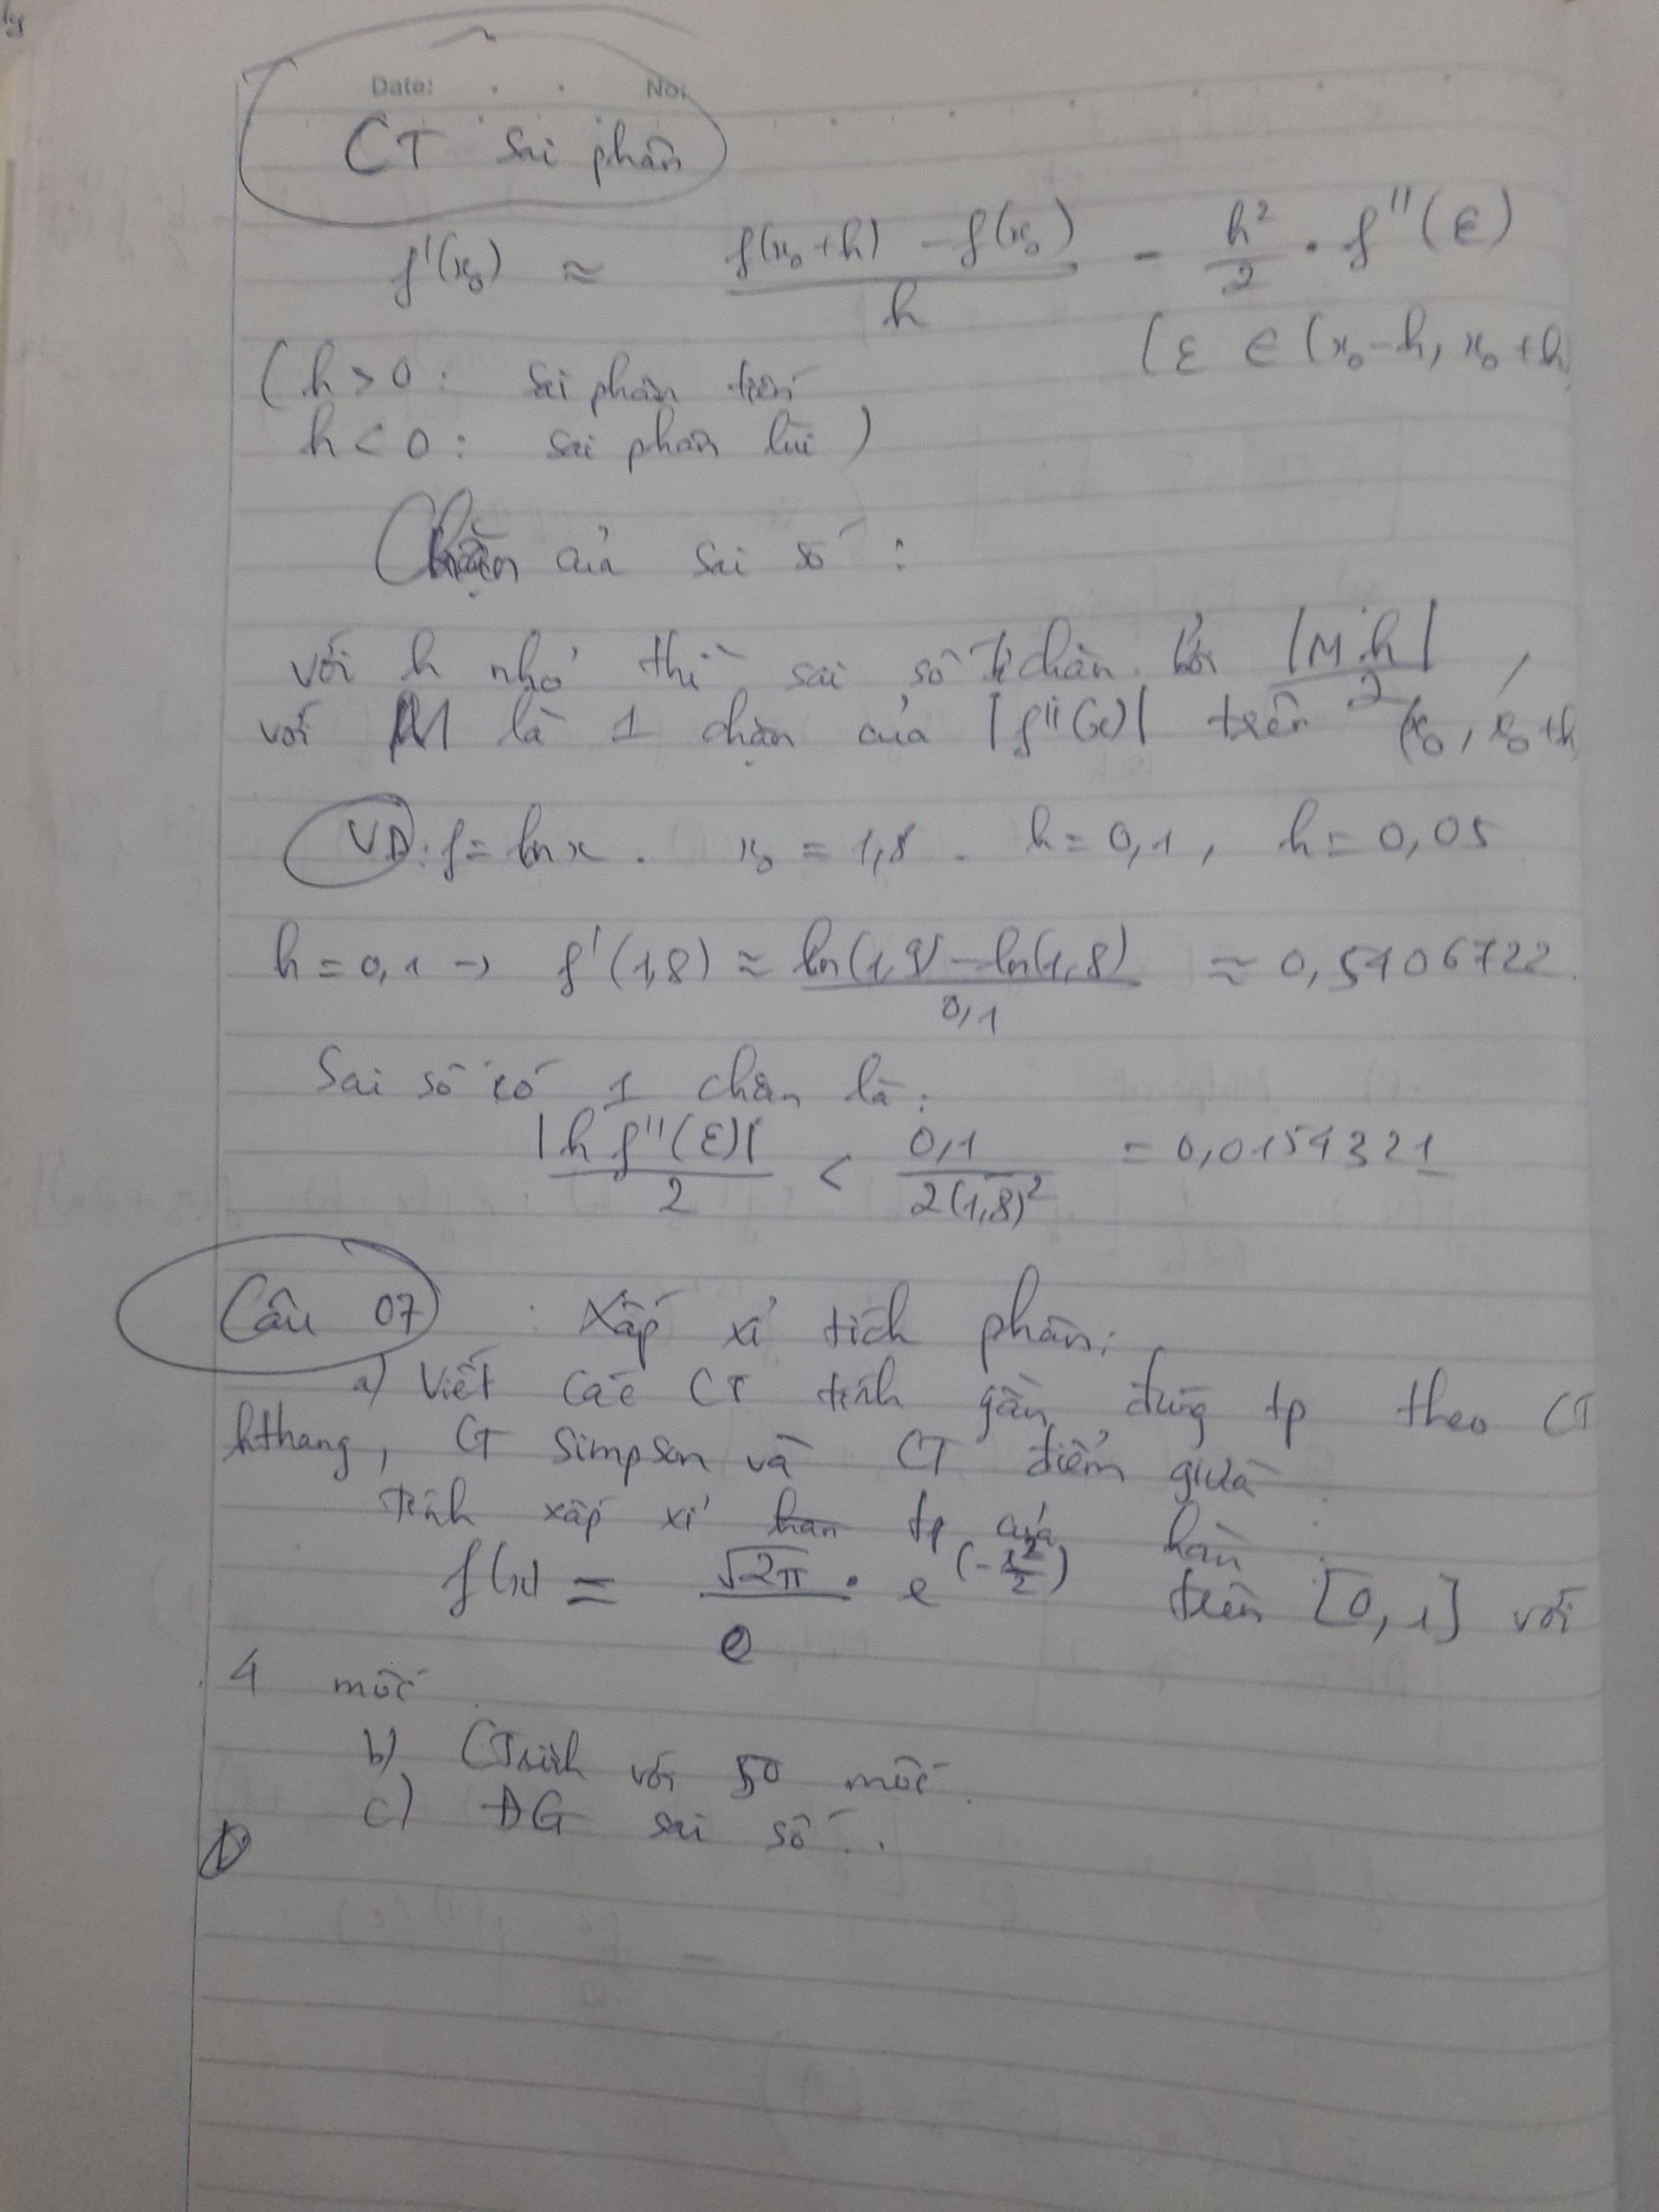 Date: No.
CT sai phân
f'(x₀) ≈ (f(x₀+h) - f(x₀))/h - h²/2 . f''(ε)
(ε ∈ (x₀-h, x₀+h
(h>0: sai phân tiến
h<0: sai phân lùi)
Chặn của sai số:
với h nhỏ thì sai số bị chặn bởi |M h|/2,
với M là 1 chặn của |f''(x)| trên (x₀, x₀+h
VD: f = ln x. x₀ = 1,8. h = 0,1, h = 0,05
h = 0,1 → f'(1,8) ≈ (ln(1,9) - ln(1,8))/0,1 ≈ 0,5406722.
Sai số có 1 chặn là:
|h f''(ε)|/2 < 0,1/(2(1,8)²) = 0,0154321
Câu 07: Xấp xỉ tích phân:
a) Viết các CT tính gần đúng tp theo CT
hthang, CT Simpson và CT điểm giữa
tính xấp xỉ tp của hàm
f(x) = √2π/e . e^(-x²/2) trên [0,1] với
4 mốc.
b) CTrình với 50 mốc.
c) ĐG sai số.